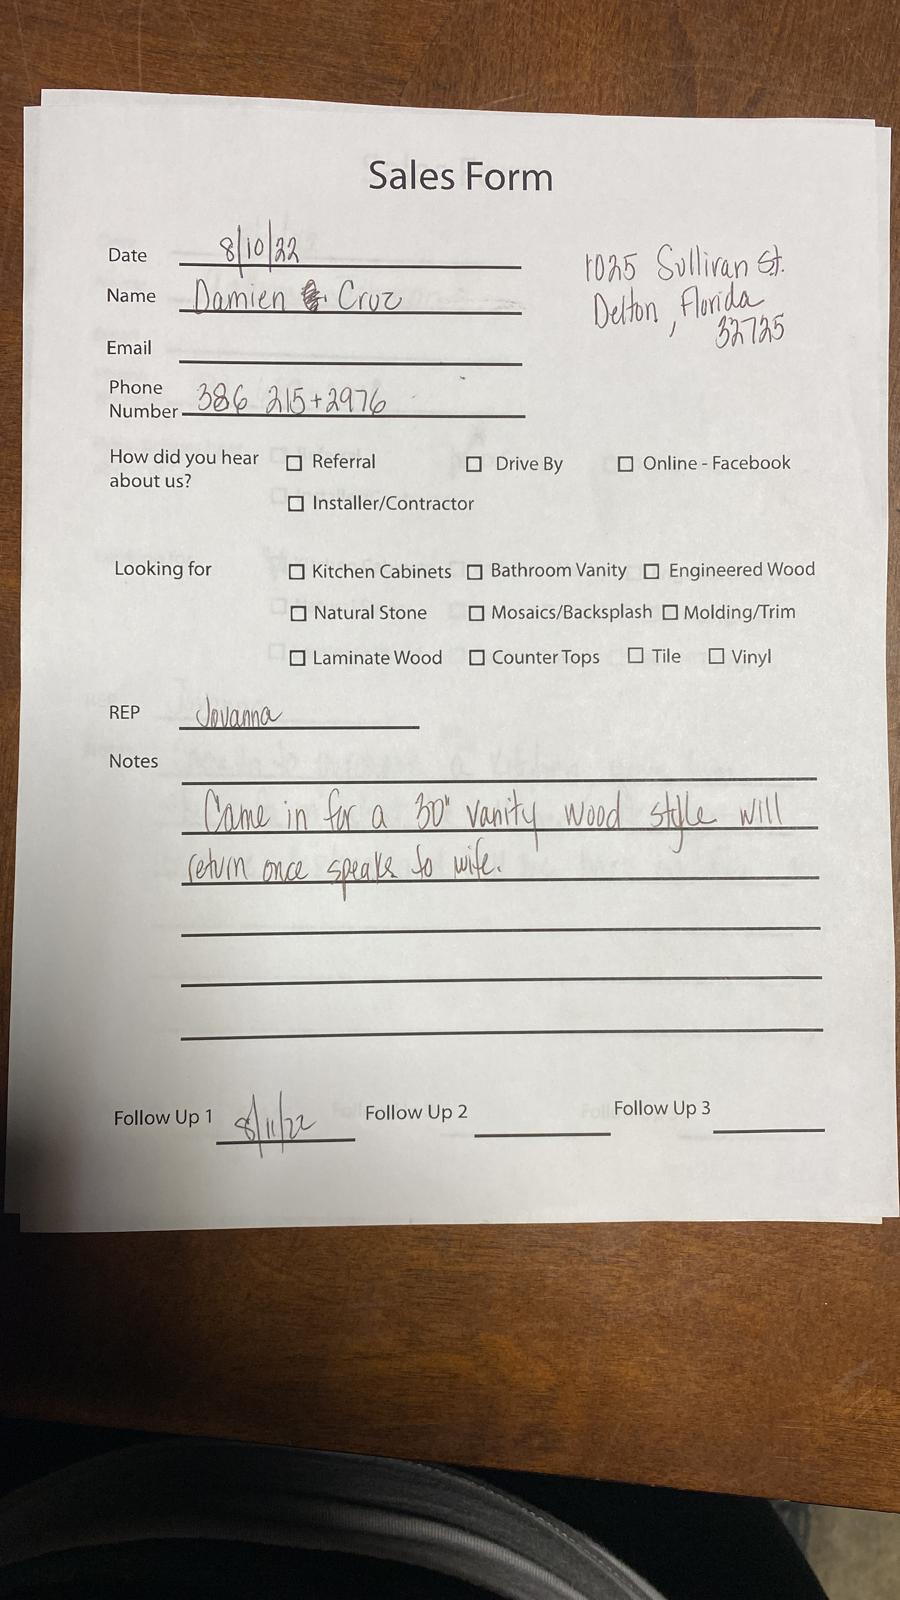 Sales Form
Date 8/10/22
1025 Sullivan St.
Name Damien Cruz
Delton, Florida
32725
Email
Phone
Number 386 215+2976
How did you hear
about us?
Referral
Drive By
Online - Facebook
Installer/Contractor
Looking for
Kitchen Cabinets
Bathroom Vanity
Engineered Wood
Natural Stone
Mosaics/Backsplash
Molding/Trim
Laminate Wood
Counter Tops
Tile
Vinyl
REP Jovanna
Notes
Came in for a 30" vanity wood style will
return once speaks to wife.
Follow Up 1 8/11/22
Follow Up 2
Follow Up 3